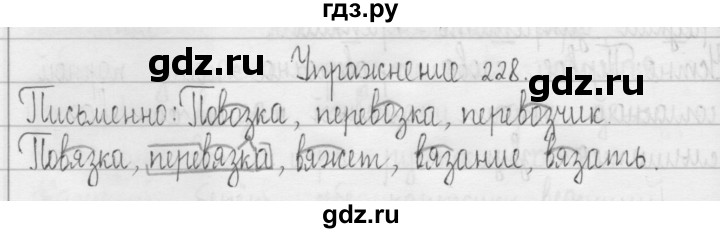 гдз.ру
gdz.ru
gdz.ru
Упражнение 228.
Письменно: Повозка, перевозка, перевозчик
Повязка, перевязка, вяжет, вязание, вязать.
gdz.ru
gdz.ru
gdz.ru